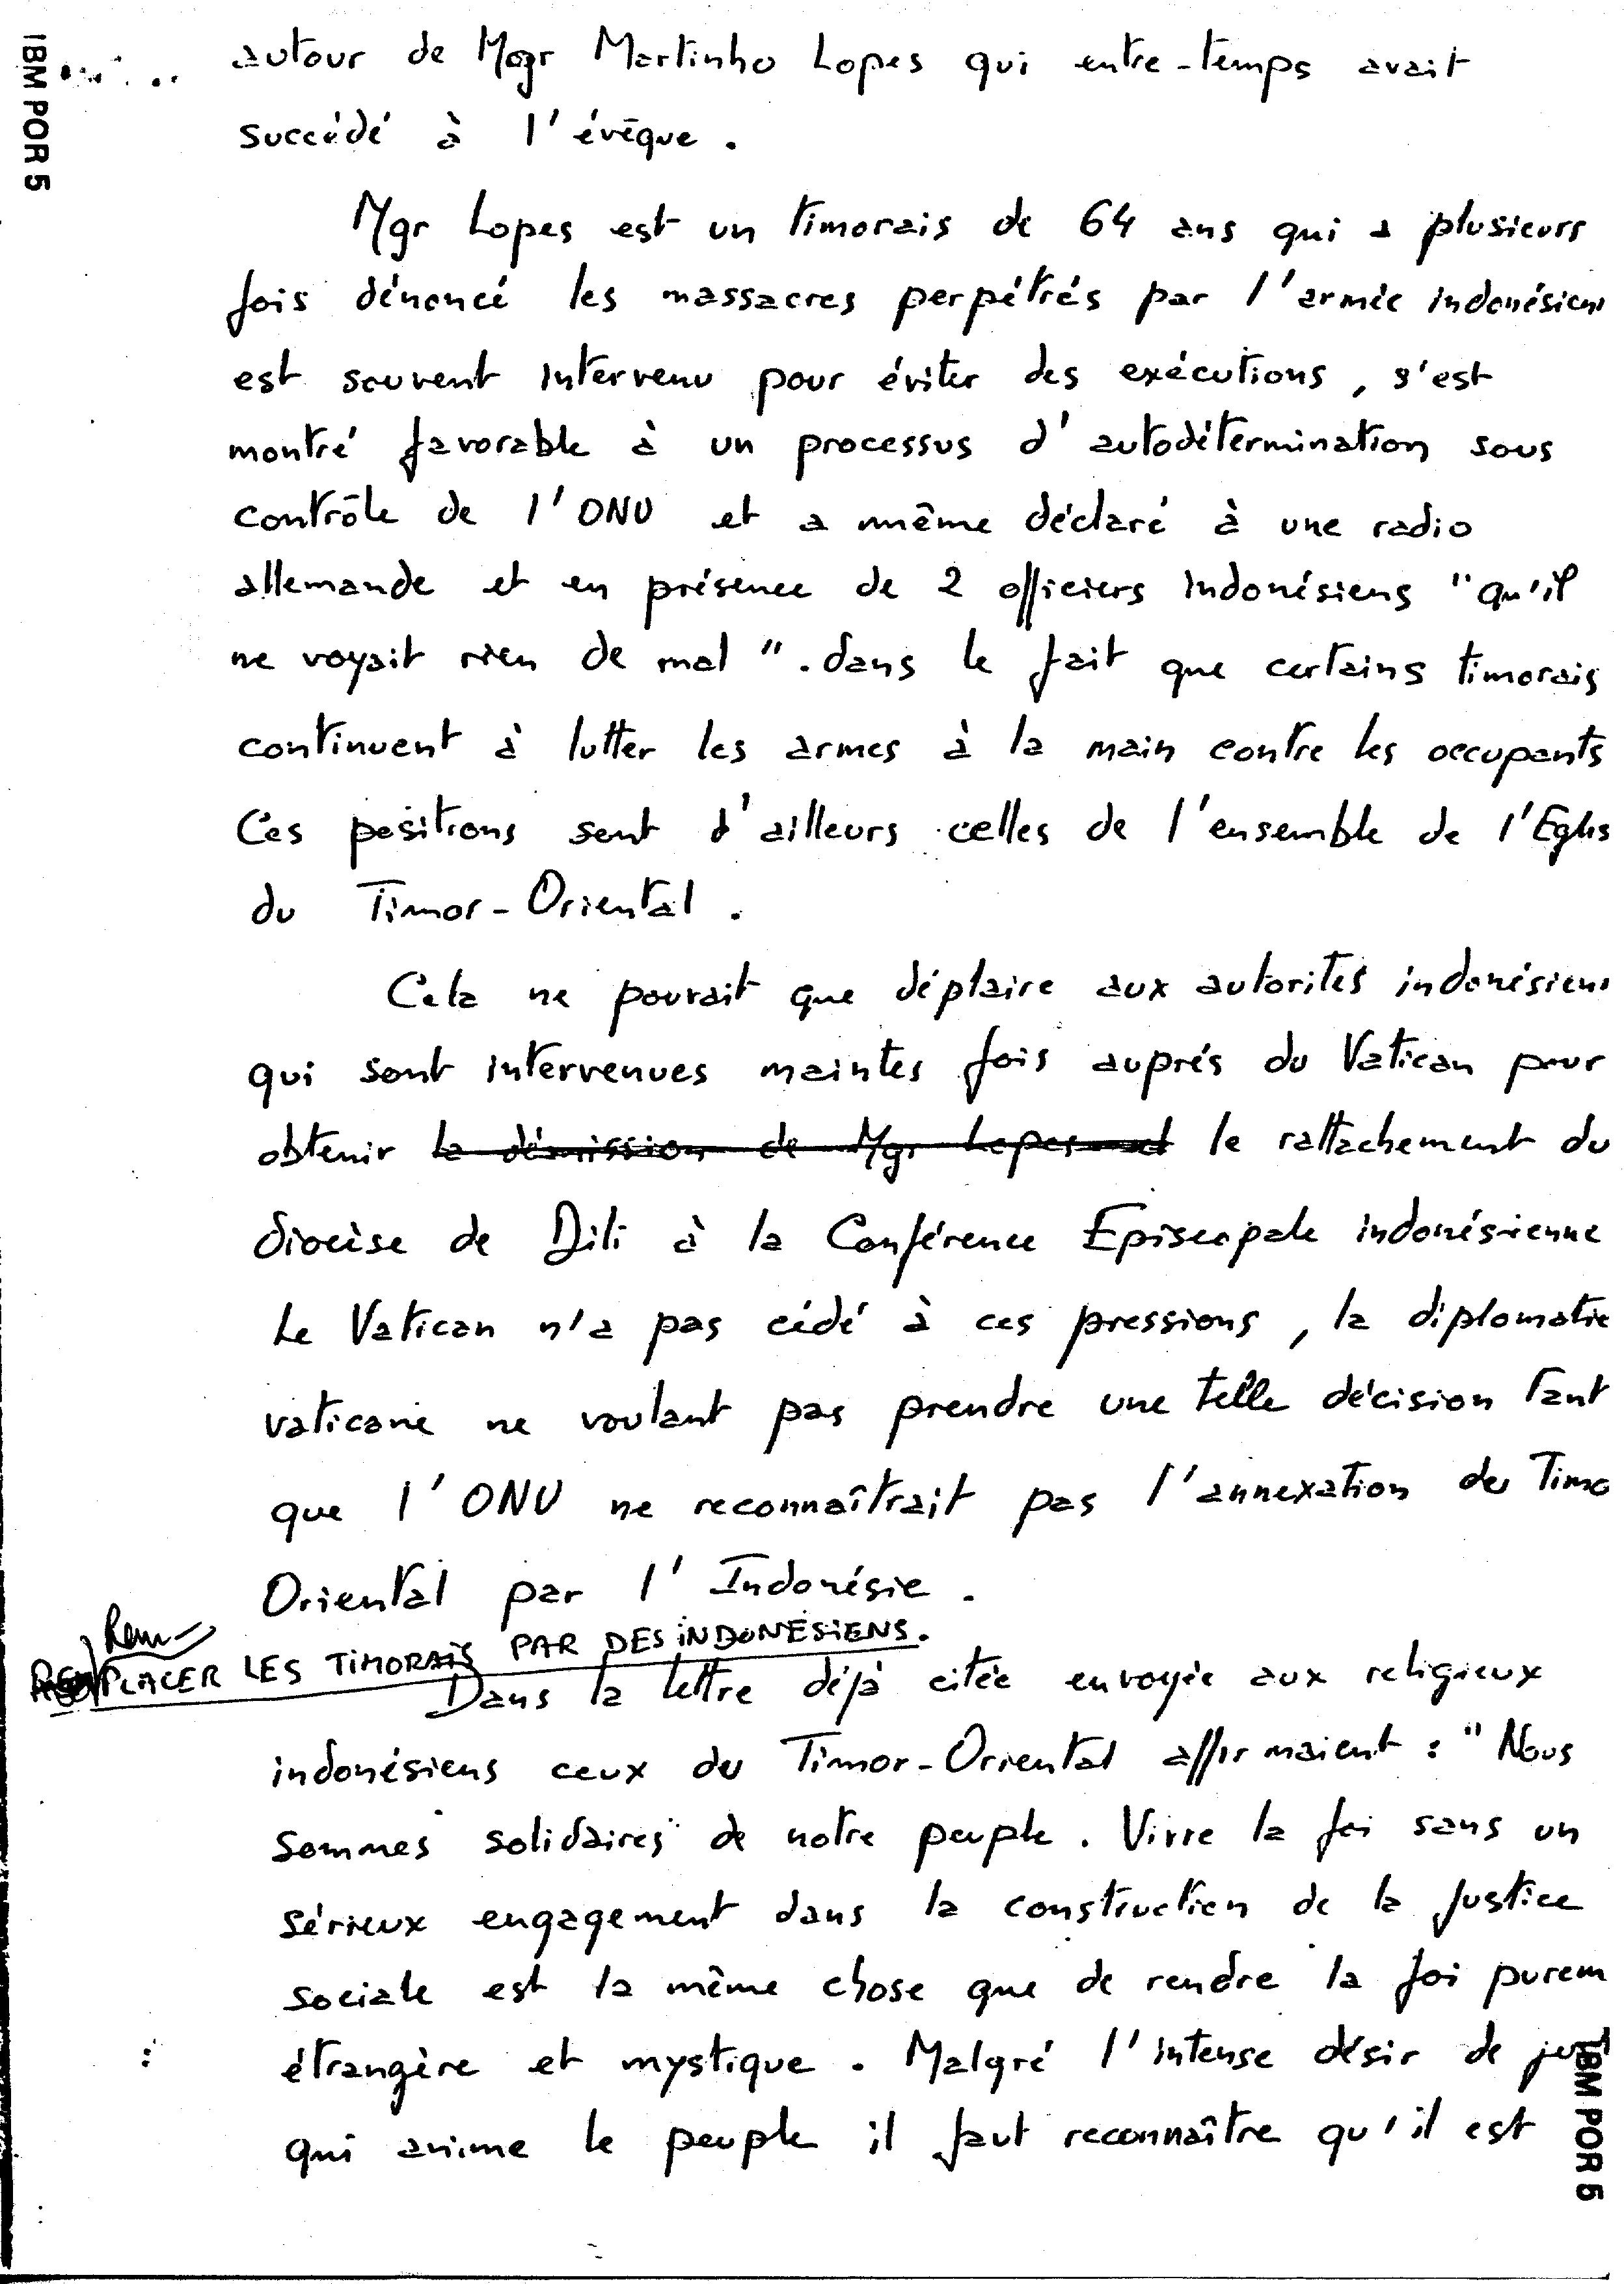 IBM POR 5
autour de Mgr Martinho Lopes qui entre-temps avait
succédé à l'évêque.
Mgr Lopes est un timorais de 64 ans qui a plusieurs
fois dénoncé les massacres perpétrés par l'armée indonésien
est souvent intervenu pour éviter des exécutions, s'est
montré favorable à un processus d'autodétermination sous
contrôle de l'ONU et a même déclaré à une radio
allemande et en présence de 2 officiers indonésiens "qu'il
ne voyait rien de mal". dans le fait que certains timorais
continuent à lutter les armes à la main contre les occupants
Ces positions sont d'ailleurs celles de l'ensemble de l'Eglis
du Timor-Oriental.
Cela ne pouvait que déplaire aux autorités indonésien
qui sont intervenues maintes fois auprés du Vatican pour
obtenir la démission de Mgr Lopes et le rattachement du
diocèse de Dili à la Conférence Episcopale indonésienne
Le Vatican n'a pas cédé à ces pressions, la diplomatie
vaticane ne voulant pas prendre une telle décision tant
que l'ONU ne reconnaîtrait pas l'annexation du Timo
Oriental par l'Indonésie.
Rem
PLACER LES TIMORAIS PAR DES INDONÉSIENS.
Dans la lettre déjà citée envoyée aux religieux
indonésiens ceux du Timor-Oriental affirmaient : "Nous
sommes solidaires de notre peuple. Vivre la foi sans un
sérieux engagement dans la construction de la justice
sociale est la même chose que de rendre la foi purem
étrangère et mystique. Malgré l'intense désir de
qui anime le peuple il faut reconnaître qu'il est
IBM POR 5